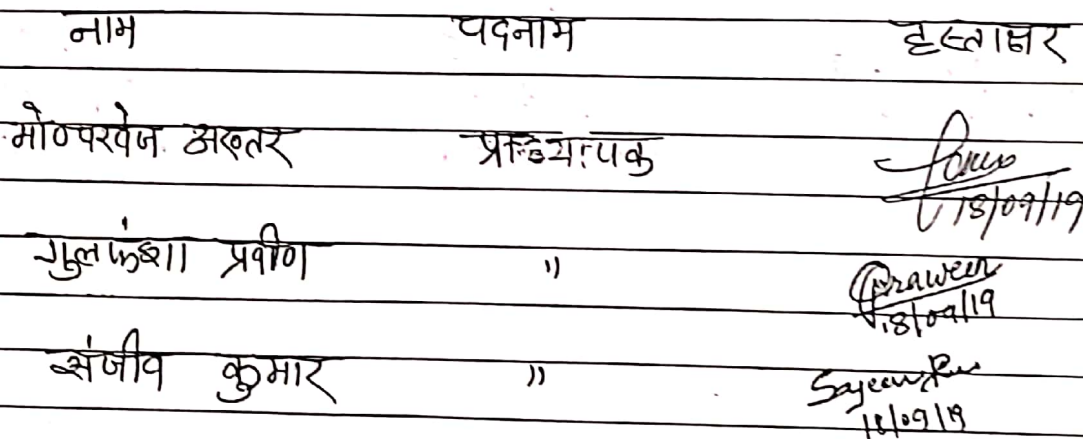 नाम पदनाम हस्ताक्षर
मो० परवेज अख्तर प्राध्यापक
18/09/19
गुलफंशा प्रवीण " Praween
18/09/19
संजीव कुमार "
18/09/19